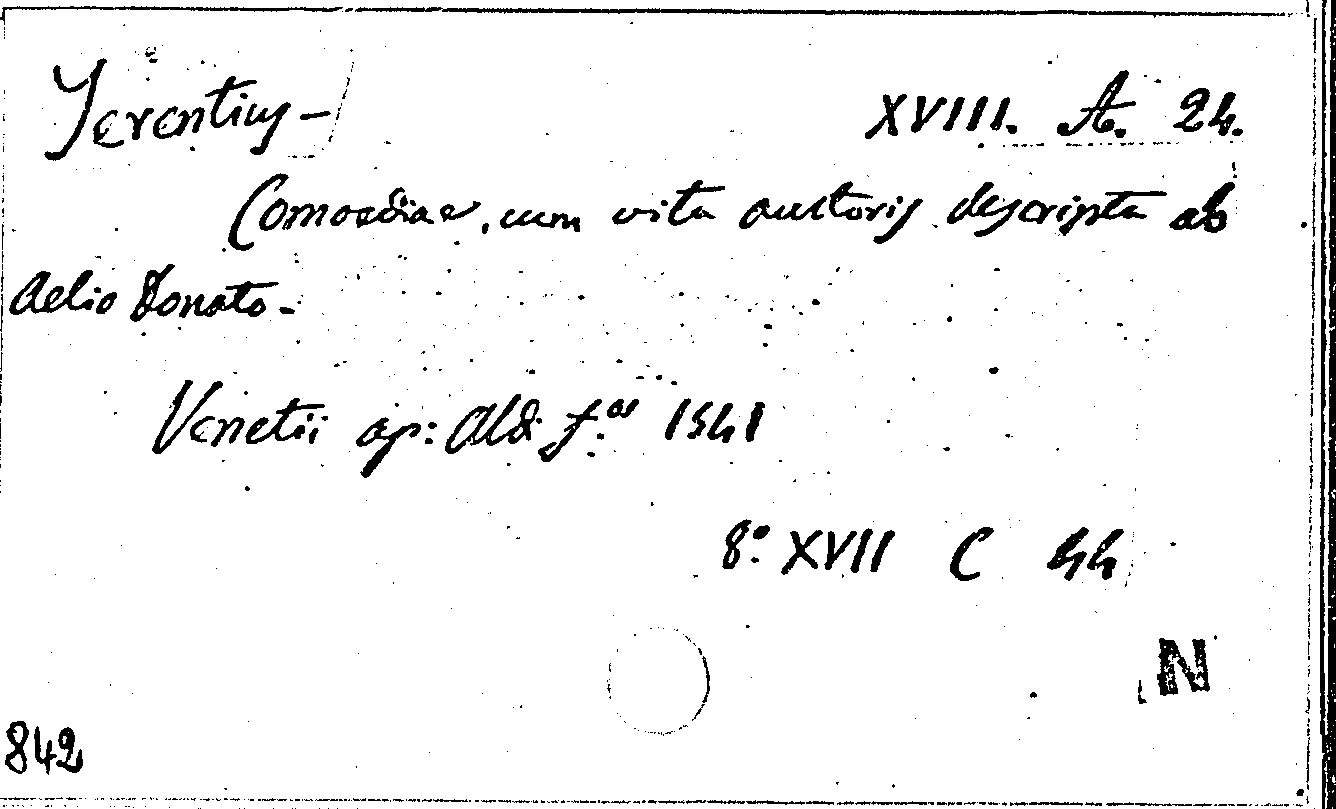 Terentius -
XVIII. A. 24.
Comoediae, cum vita auctoris descripta ab
Aelio Donato -
Venetii ap: Ald: f.os 1541
8.° XVII C 44
N
842